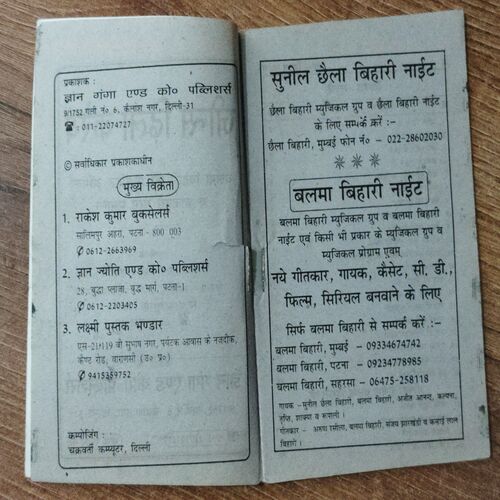 प्रकाशक :
ज्ञान गंगा एण्ड को० पब्लिशर्स
9/1752 गली नं० 6, कैलाश नगर, दिल्ली-31
☎ : 011-22074727
© सर्वाधिकार प्रकाशकाधीन
मुख्य विक्रेता
1. राकेश कुमार बुकसेलर्स
सालिमपुर अहरा, पटना - 800 003
✆ 0612-2663969
2. ज्ञान ज्योति एण्ड को० पब्लिशर्स
28, बुद्धा प्लाजा, बुद्ध मार्ग, पटना-1
✆ 0612-2203405
3. लक्ष्मी पुस्तक भण्डार
एस-21/119 बी सुभाष नगर, पर्यटक आवास के नजदीक,
केण्ट रोड, वाराणसी (उ० प्र०)
✆ 9415359752
कम्पोजिंग :
चक्रवर्ती कम्प्यूटर, दिल्ली
सुनील छैला बिहारी नाईट
छैला बिहारी म्युजिकल ग्रुप व छैला बिहारी नाईट
के लिए सम्पर्क करें :-
छैला बिहारी, मुम्बई फोन नं० - 022-28602030
बलमा बिहारी नाईट
बलमा बिहारी म्युजिकल ग्रुप व बलमा बिहारी
नाईट एवं किसी भी प्रकार के म्युजिकल ग्रुप व
म्युजिकल प्रोग्राम एवम्
नये गीतकार, गायक, कैसेट, सी. डी.,
फिल्म, सिरियल बनवाने के लिए
सिर्फ बलमा बिहारी से सम्पर्क करें :-
बलमा बिहारी, मुम्बई - 09334674742
बलमा बिहारी, पटना - 09234778985
बलमा बिहारी, सहरसा - 06475-258118
गायक -सुनील छैला बिहारी, बलमा बिहारी, अजीत आनन्द, कल्पना,
तृप्ति, शाक्या व रूपाली ।
गीतकार - अरुण रसीला, बलमा बिहारी, संजय झारखंडी व कन्हाई लाल
बिहारी ।